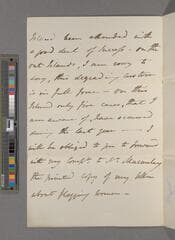 Island been attended with
a good deal of success - on the
out Islands, I am sorry to
say, this degrading custom
is in full force - on this
Island only five cases, that I
am aware of, have occurred
during the last year - I
will be obliged to you to forward
with my Compts to Mr. Macaulay
the printed copy of my letter
about flogging women -